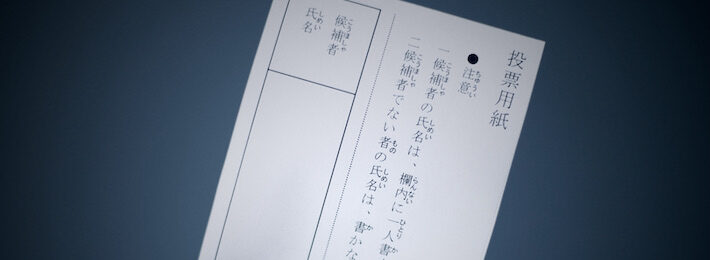 投票用紙
●注意
一 候補者の氏名は、欄内に一人書
二 候補者でない者の氏名は、書かな
候補者
氏名